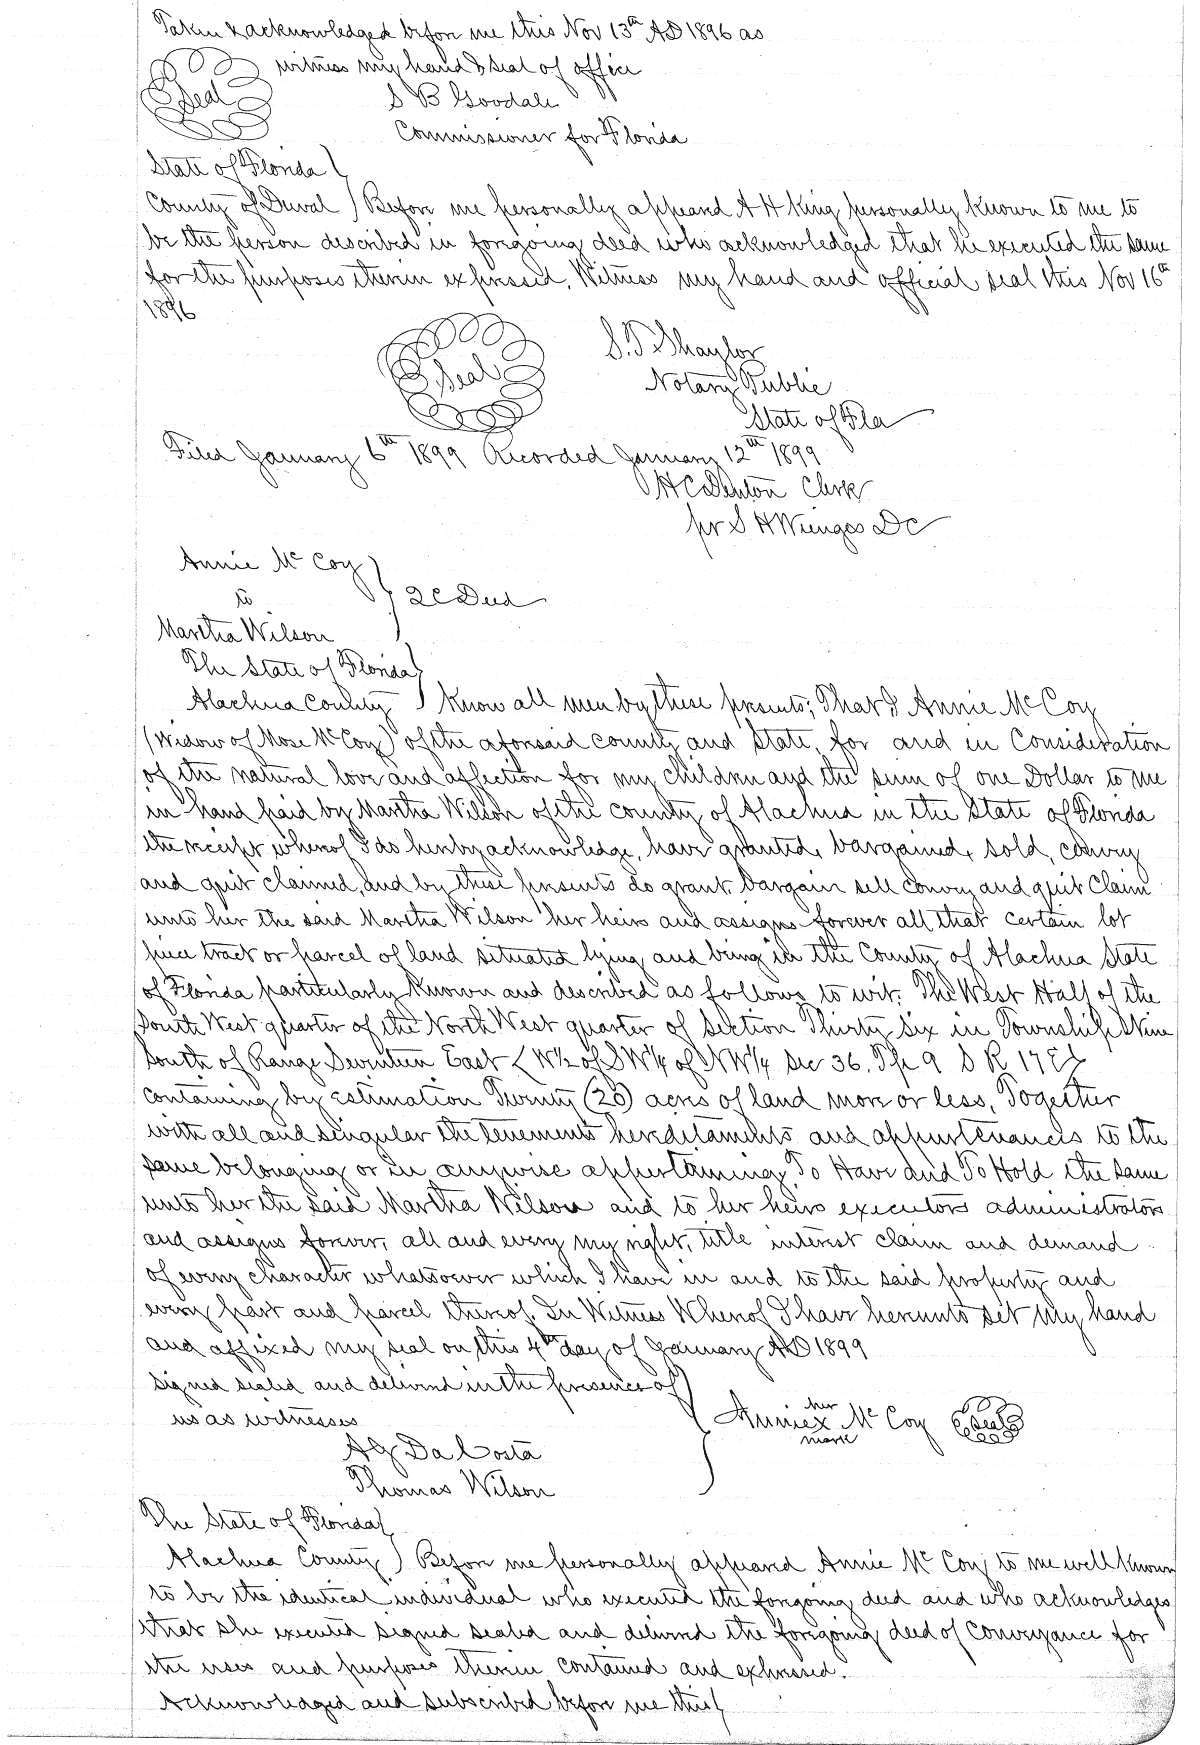 Taken & acknowledged before me this Nov 13th AD 1896 as
witness my hand & seal of office
Seal
S B Goodale
Commissioner for Florida
State of Florida
County of Duval } Before me personally appeard A H King personally known to me to
be the person described in foregoing deed who acknowledged that he executed the same
for the purposes therein expressed. Witness my hand and official seal this Nov 16th
1896
Seal
S. T. Shaylor
Notary Public
State of Fla
Filed January 6th 1899 Recorded January 12th 1899
H C Denton Clerk
pr S H Wienges D C
Annie McCoy
to } QC Deed
Martha Wilson
The State of Florida
Alachua County } Know all men by these presents; That I Annie McCoy
(Widow of Mose McCoy) of the aforesaid county and State, for and in Consideration
of the natural love and affection for my children and the sum of one Dollar to me
in hand paid by Martha Wilson of the county of Alachua in the State of Florida
the receipt whereof I do hereby acknowledge, have granted, bargained, sold, convey
and quit claimed, and by these presents do grant bargain sell convey and quit Claim
unto her the said Martha Wilson her heirs and assigns forever all that certain lot
piece tract or parcel of land situated lying and being in the County of Alachua State
of Florida particularly known and described as follows to wit: The West Half of the
South West quarter of the North West quarter of Section Thirty Six in Township Nine
South of Range Seventeen East (W½ of SW¼ of NW¼ Sec 36. Tp 9 S R 17 E)
containing by estimation Twenty (20) acres of land more or less, Together
with all and singular the tenements hereditaments and appurtenances to the
same belonging or in anywise appertaining, To Have and To Hold the same
unto her the said Martha Wilson and to her heirs executors administrators
and assigns forever, all and every my right, title interest claim and demand
of every character whatsoever which I have in and to the said property and
every part and parcel thereof. In Witness Whereof I have hereunto set my hand
and affixed my seal on this 4th day of January AD 1899
signed sealed and delivered in the presence of
us as witnesses
her
Annie x McCoy Seal
mark
A J Da Costa
Thomas Wilson
The State of Florida
Alachua County } Before me personally appeard Annie McCoy to me well known
to be the identical individual who executed the foregoing deed and who acknowledges
that she executed signed sealed and delivered the foregoing deed of conveyance for
the uses and purposes therein contained and expressed.
Acknowledged and subscribed before me this